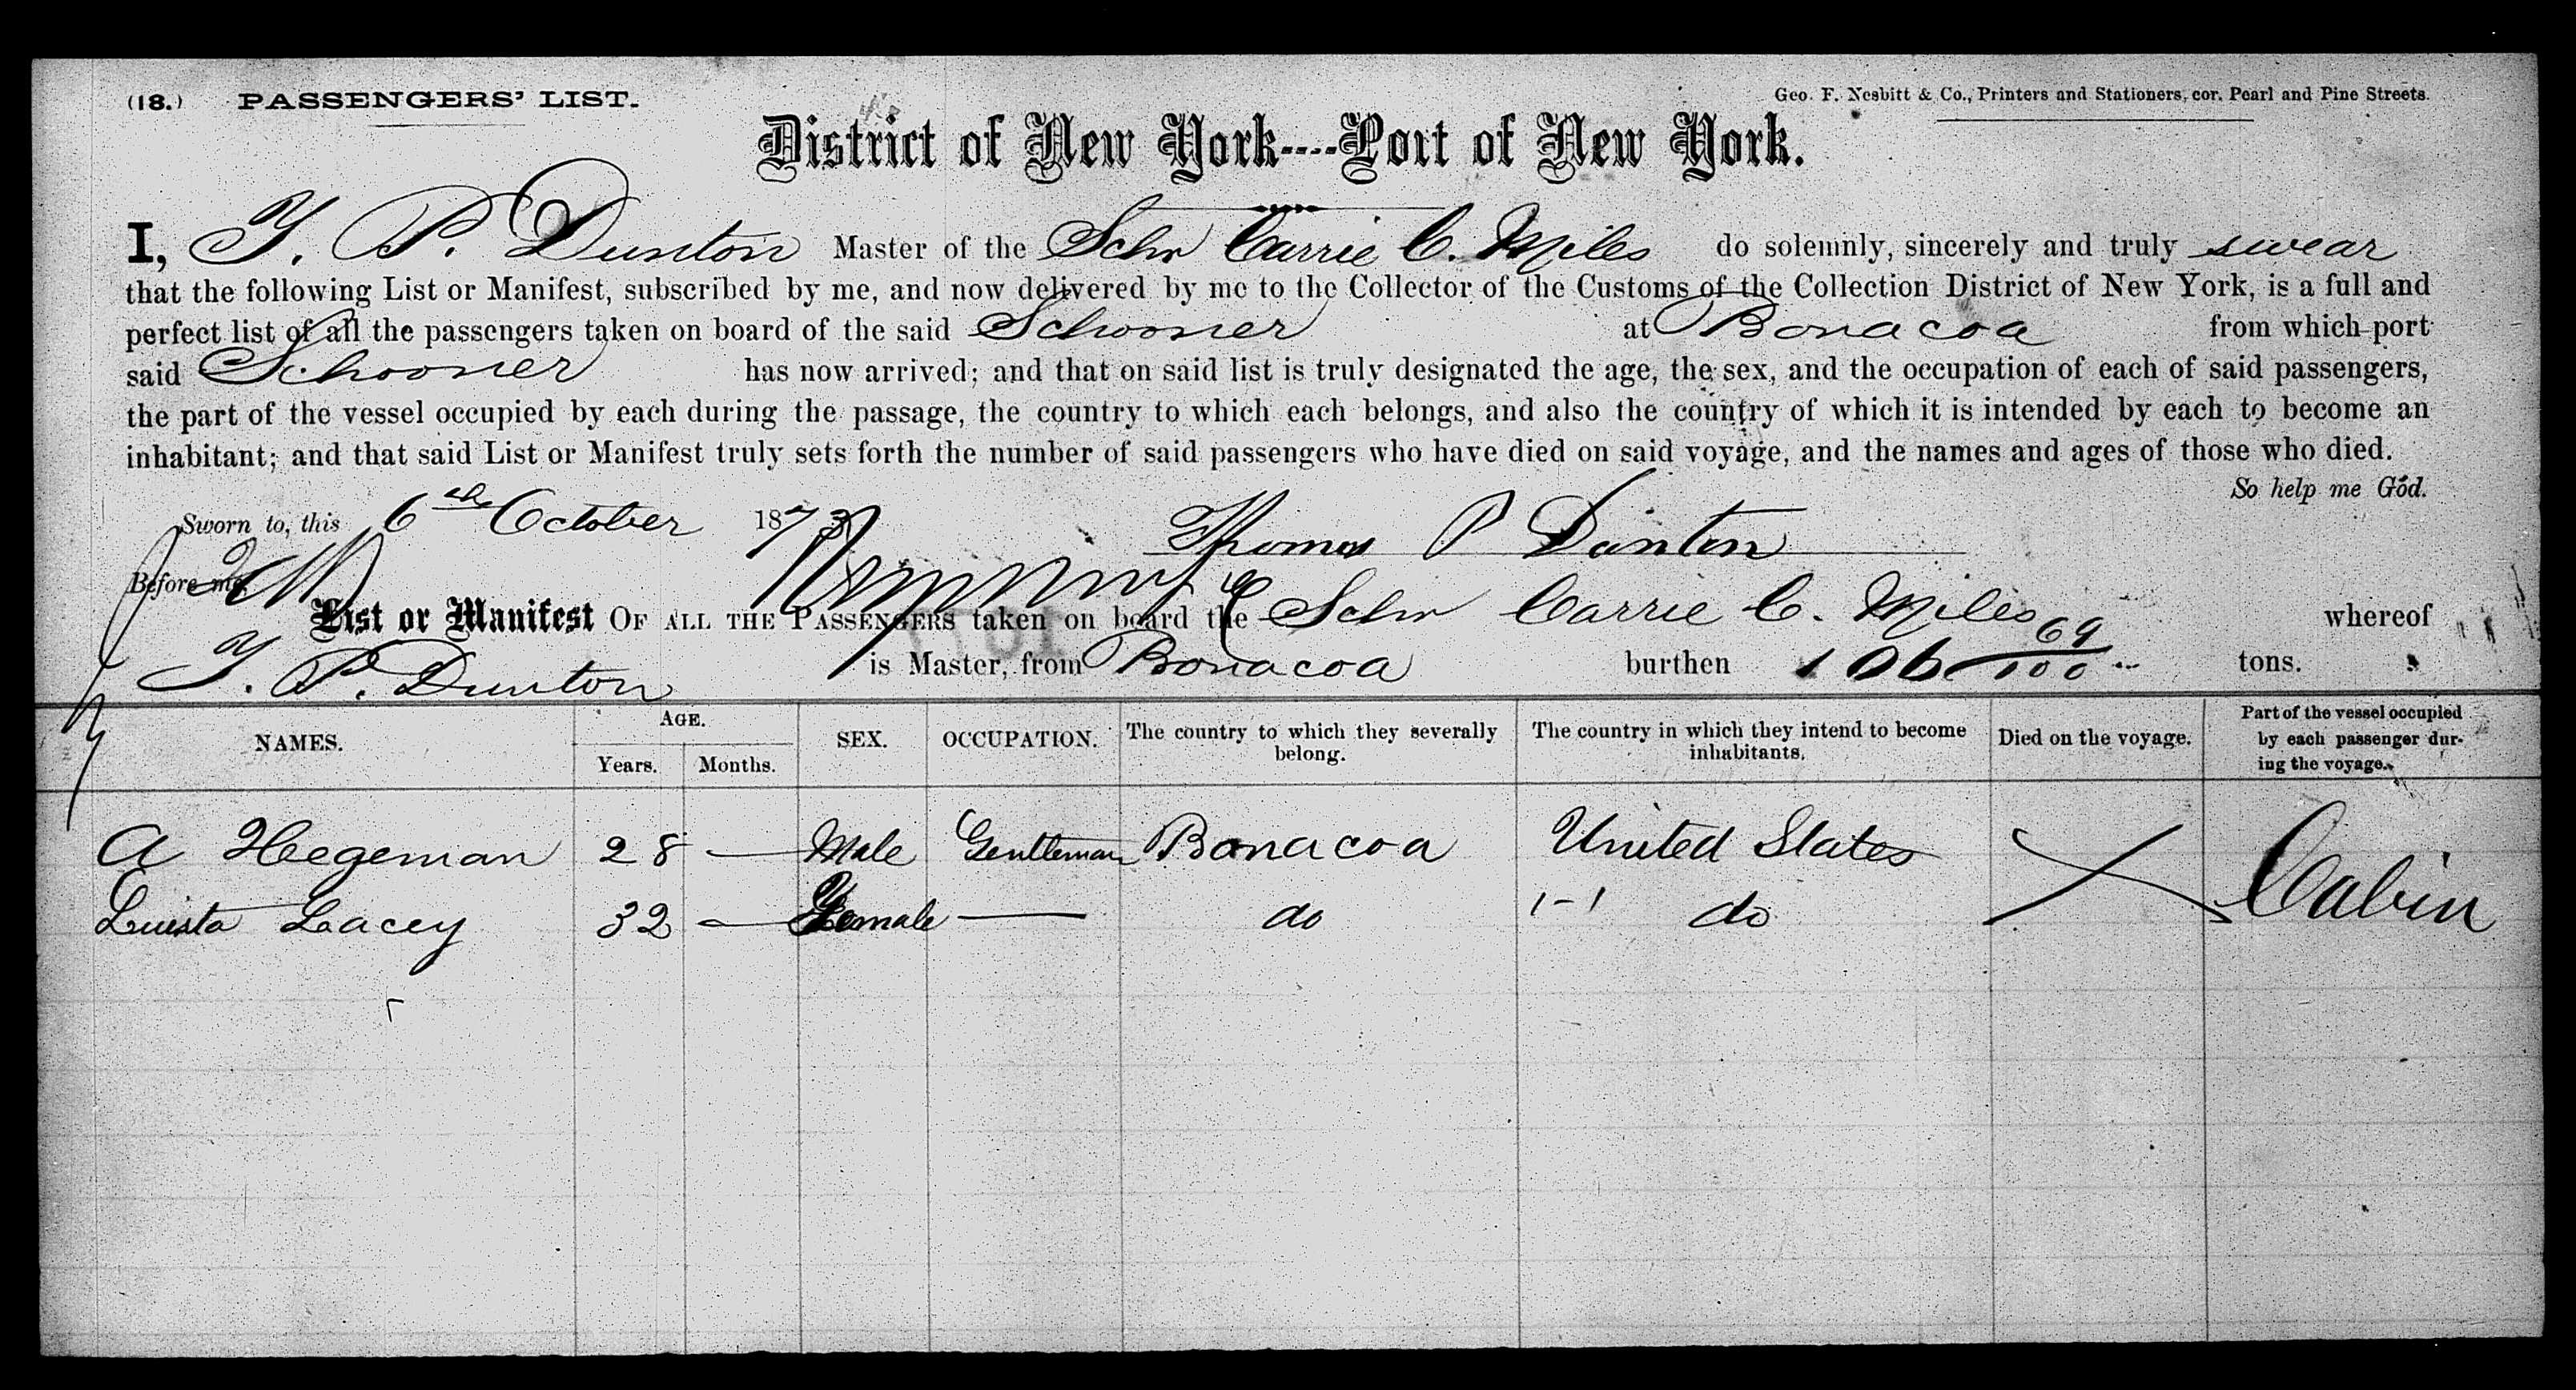 (18.) PASSENGERS' LIST.
Geo. F. Nesbitt & Co., Printers and Stationers, cor. Pearl and Pine Streets.
District of New York----Port of New York.
I, T. P. Dunton Master of the Schr Carrie C. Miles do solemnly, sincerely and truly swear
that the following List or Manifest, subscribed by me, and now delivered by me to the Collector of the Customs of the Collection District of New York, is a full and
perfect list of all the passengers taken on board of the said Schooner at Bonacoa from which port
said Schooner has now arrived; and that on said list is truly designated the age, the sex, and the occupation of each of said passengers,
the part of the vessel occupied by each during the passage, the country to which each belongs, and also the country of which it is intended by each to become an
inhabitant; and that said List or Manifest truly sets forth the number of said passengers who have died on said voyage, and the names and ages of those who died.
So help me God.
Sworn to, this 6th October 1873
Thomas P Dunton
Before me,
List or Manifest OF ALL THE PASSENGERS taken on board the Schr Carrie C. Miles whereof
T. P. Dunton is Master, from Bonacoa burthen 106 69/100 tons.
NAMES. AGE. Years. Months. SEX. OCCUPATION. The country to which they severally belong. The country in which they intend to become inhabitants. Died on the voyage. Part of the vessel occupied by each passenger during the voyage.
A Hegeman 28 — Male Gentleman Bonacoa United States Cabin
Lacey 32 — Female — do do